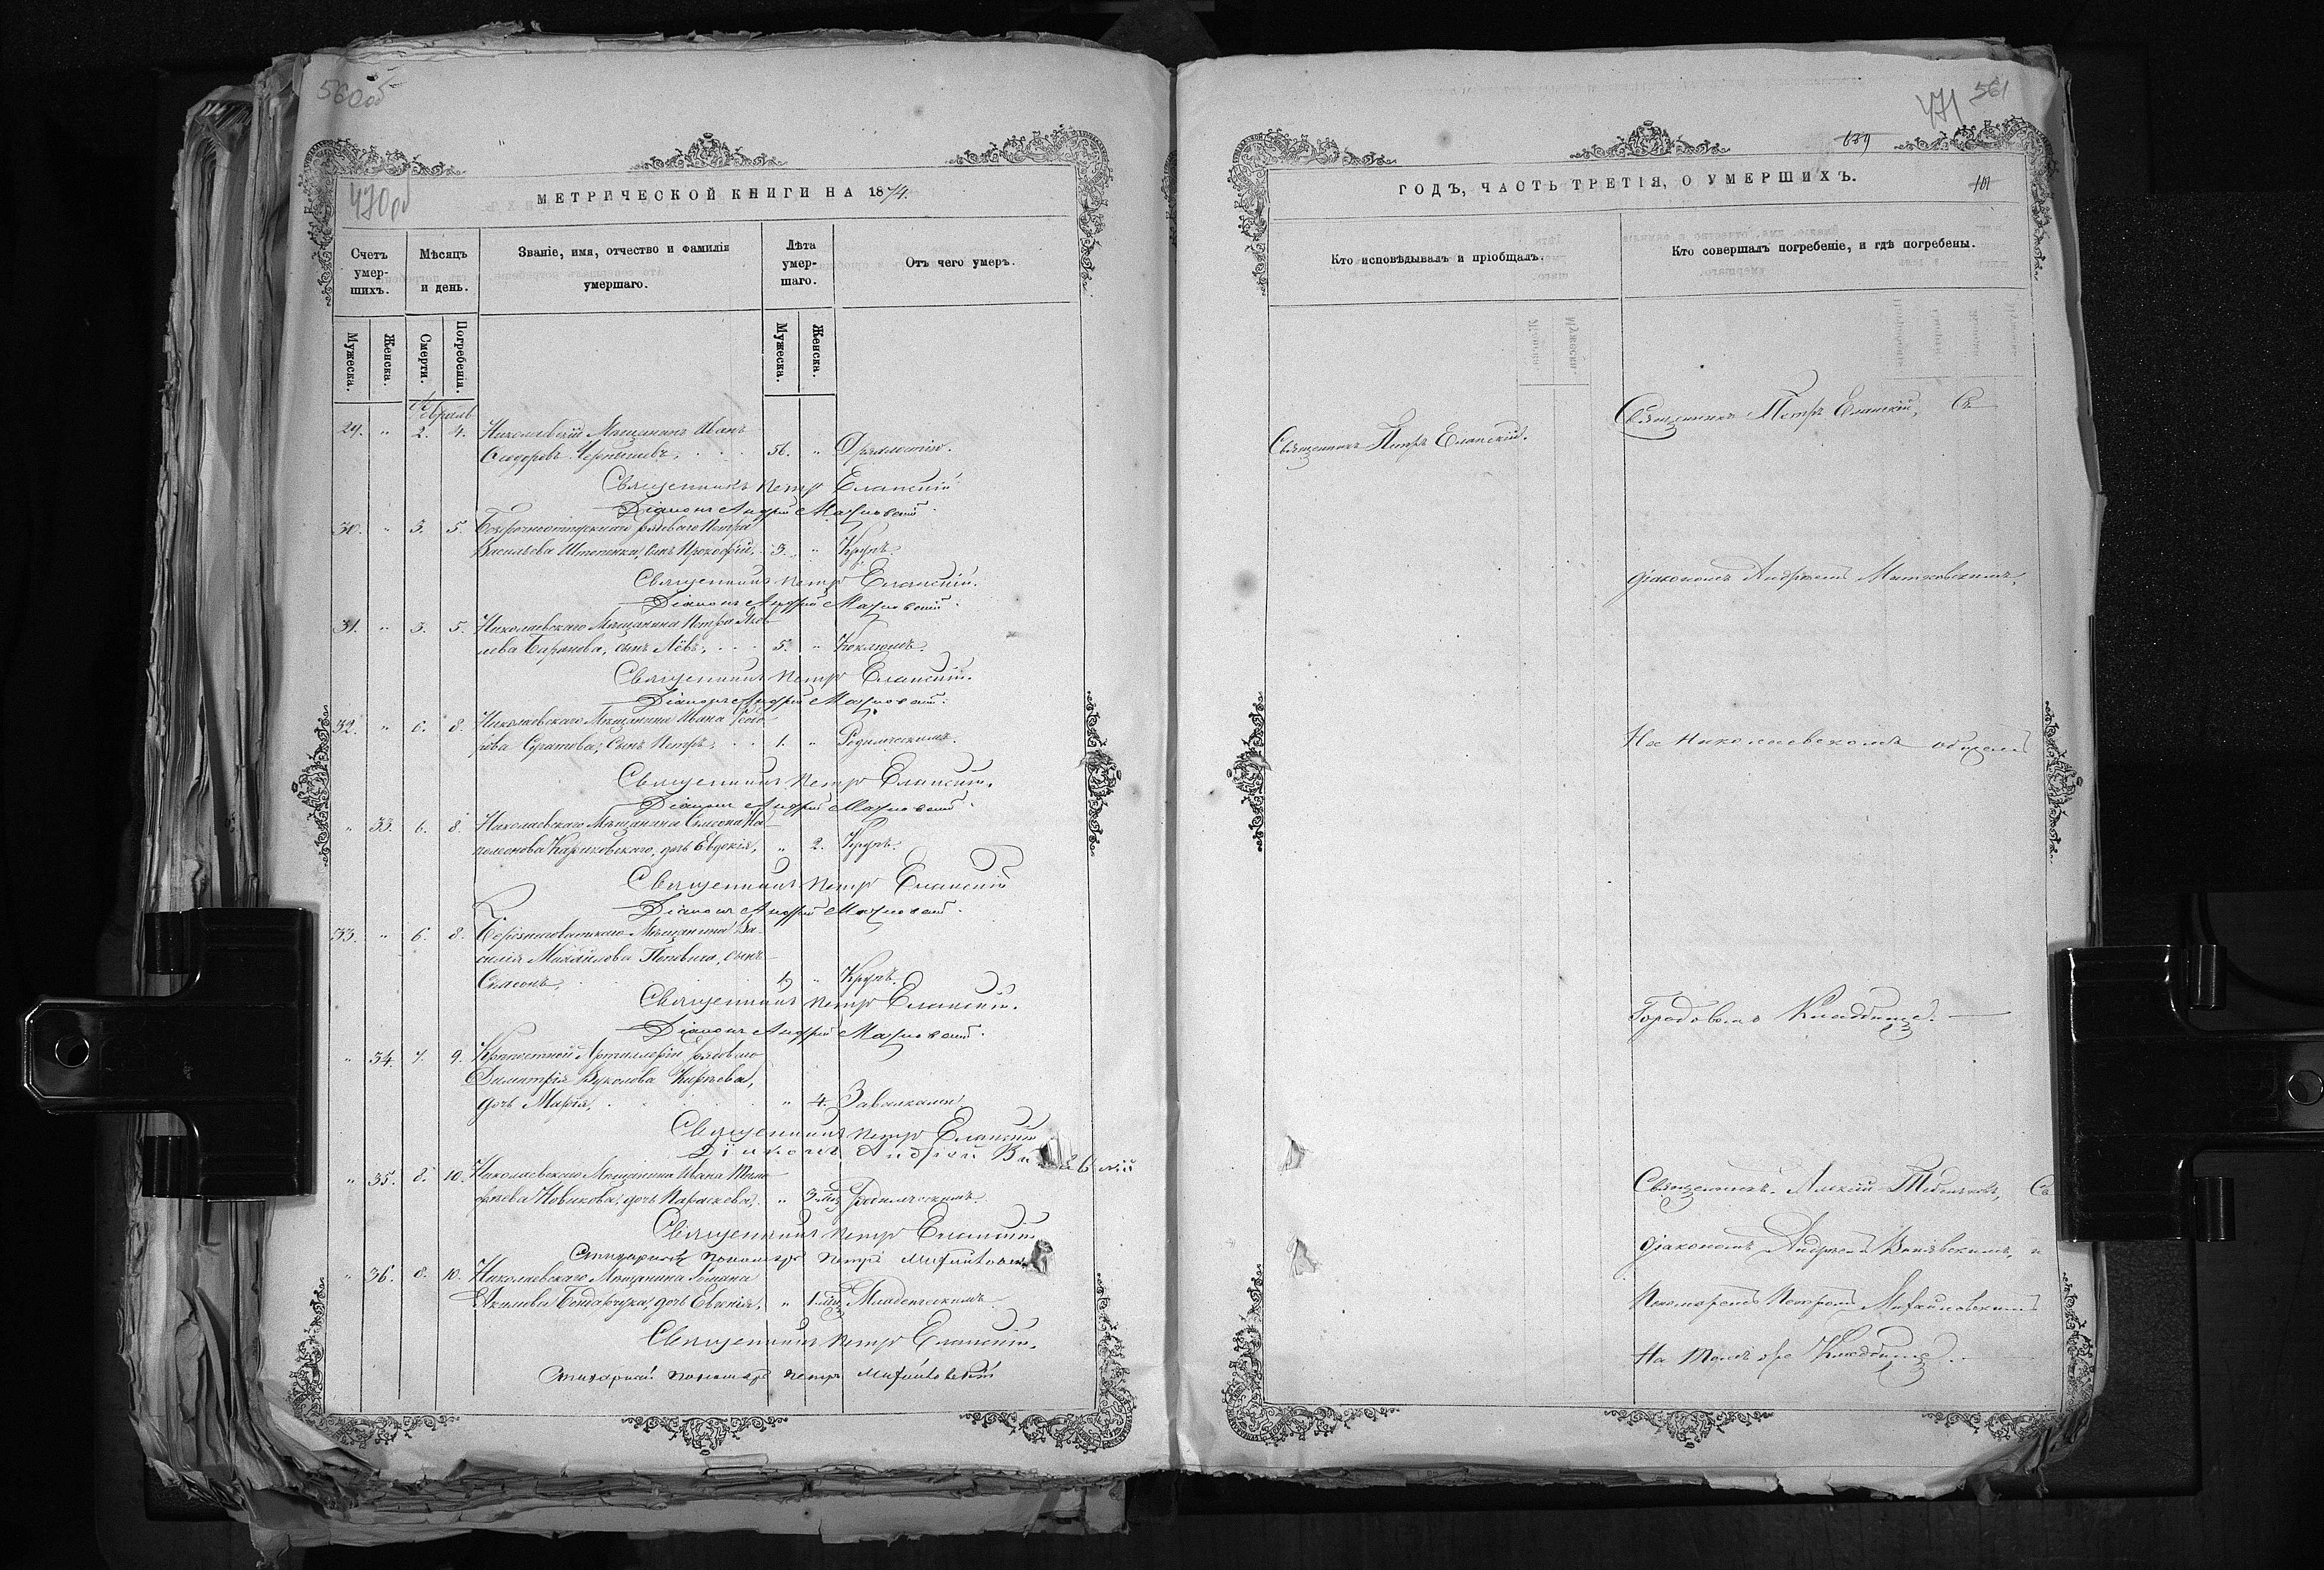 560об
470об
МЕТРИЧЕСКОЙ КНИГИ НА 1874.
Счетъ умер-шихъ.
Мѣсяцъ и день.
Званіе, имя, отчество и фамилія умершаго.
Лѣта умер-шаго.
Отъ чего умеръ.
Мужеска.
Женска.
Смерти.
Погребенія.
Мужеска.
Женска.
Февраль
29. " 2. 4. Николаевскій Мѣщанинъ Иванъ
Сидоровъ Чернышевъ, 56. " Дряхлостію.
Священникъ Петръ Еланскій
Діаконъ Андрей
30. " 3. 5. рядоваго Петра
Васильева сынъ Прокофій, 3. " Крупъ.
Священникъ Петръ Еланскій.
Діаконъ Андрей
31. " 3. 5. Николаевскаго Мѣщанина Петра Яков-
лева Баранова, сынъ Левъ, 5. " Коклюшъ.
Священникъ Петръ Еланскій.
Діаконъ Андрей
32. " 6. 8. Николаевскаго Мѣщанина Ивана Ѳедо-
рова сынъ Петръ, 1. " Родимческимъ.
Священникъ Петръ Еланскій.
Діаконъ Андрей
" 33. 6. 8. Николаевскаго Мѣщанина
дочь Евдокія, " 2. Крупъ.
Священникъ Петръ Еланскій
Діаконъ Андрей
33. " 6. 8. Мѣщанина Ва-
силія Михайлова Поповича, сынъ
Симеонъ, " Крупъ.
Священникъ Петръ Еланскій.
Діаконъ Андрей
" 34. 7. 9. Крѣпостной Артиллеріи рядоваго
Димитрія Вуколова
дочь Марія, " 4. Завалками
Священникъ Петръ Еланскій
Діаконъ Андрей
" 35. 8. 10. Николаевскаго Мѣщанина Ивана Тимо-
фѣева Новикова, дочь Параскева, " 3. Родимческимъ.
Священникъ Петръ Еланскій
Стихарный пономарь Петръ Михайловскій
" 36. 8. 10. Николаевскаго Мѣщанина Романа
Акимова Бондарчука, дочь Евгенія, " 1. Младенческимъ
Священникъ Петръ Еланскій.
Стихарный пономарь Петръ Михайловскій
561
471
101
ГОДЪ, ЧАСТЬ ТРЕТІЯ, О УМЕРШИХЪ.
Кто исповѣдывалъ и пріобщалъ.
Кто совершалъ погребеніе, и гдѣ погребены.
Священникъ Петръ Еланскій.
Священникъ Петръ Еланскій, Съ
діакономъ Андреемъ
На Николаевскомъ общемъ
Городовомъ Кладбищѣ.
Священникъ Алексій Съ
діакономъ Андреемъ и
Пономаремъ Петромъ Михайловскимъ
На томъ же Кладбищѣ.